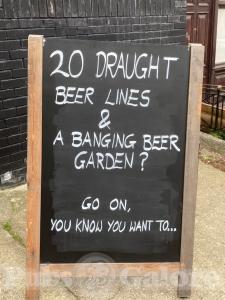 20 DRAUGHT
BEER LINES
&
A BANGING BEER
GARDEN?
GO ON,
YOU KNOW YOU WANT TO...
Pubs Galore